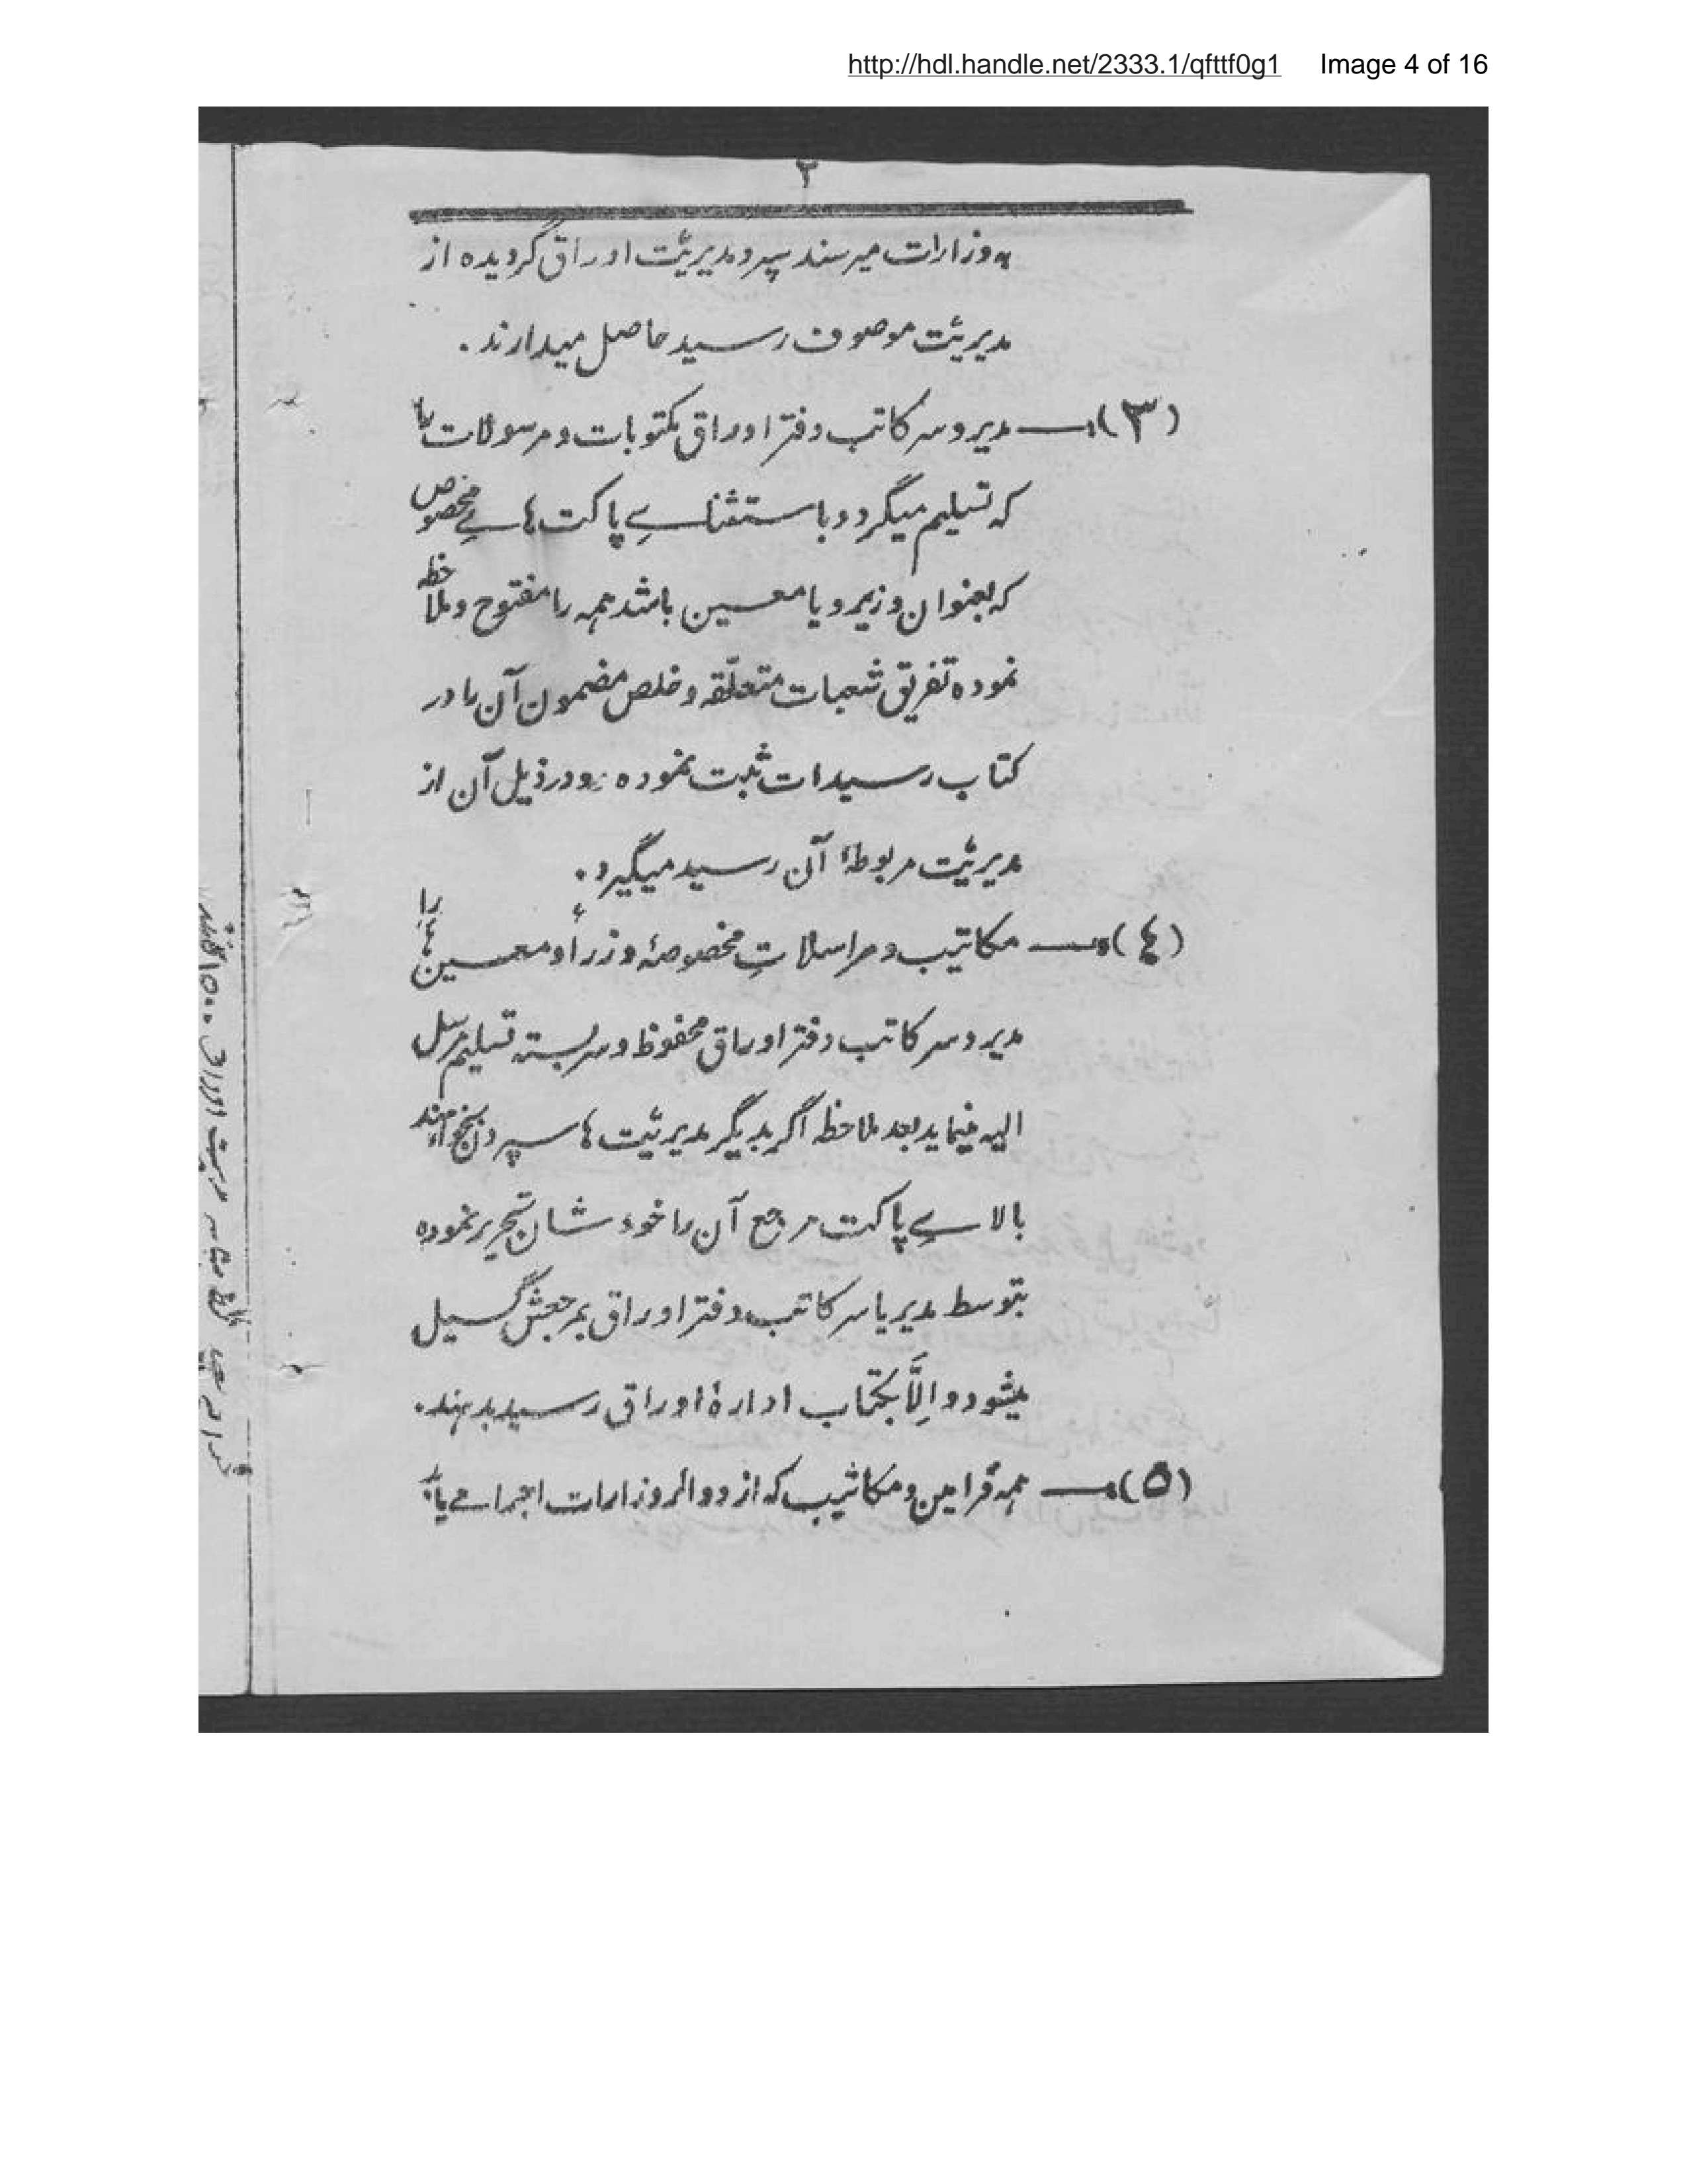 http://hdl.handle.net/2333.1/qfttf0g1 Image 4 of 16
۲
بوزارات میرسند سپرد مدیریّت اوراق گردیده از
مدیریّت موصوف رسید حاصل میدارند.
(۳)— مدیر و سر کاتب دفتر اوراق مکتوبات و مرسولات را
که تسلیم میگردد باستثناے پاکت هاے مخصوص
که بعنوان وزیر و یا معین باشد همه را مفتوح و ملاحظه
نموده تفریق شعبات متعلّقه و خلص مضمون آن را در
کتاب رسیدات ثبت نموده و در ذیل آن از
مدیریّت مربوطۀ آن رسید میگیرد.
(٤)— مکاتیب و مراسلاتِ مخصوصۀ وزرأ و معین هٔا را
مدیر و سر کاتب دفتر اوراق محفوظ و سربسته تسلیم مرسل
الیه مینماید بعد ملاحظه اگر بدیگر مدیریّت ها سپردن بخواهند
بالاے پاکت مرجع آن را خود شان تحریر نموده
بتوسط مدیر یا سر کاتب دفتر اوراق بمرجعش گسیل
میشود و اِلَّا بکتاب ادارۀ اوراق رسید بدهند.
(۵)— همه فرامین و مکاتیب که از دوائر وزارات اجرا مے یابد